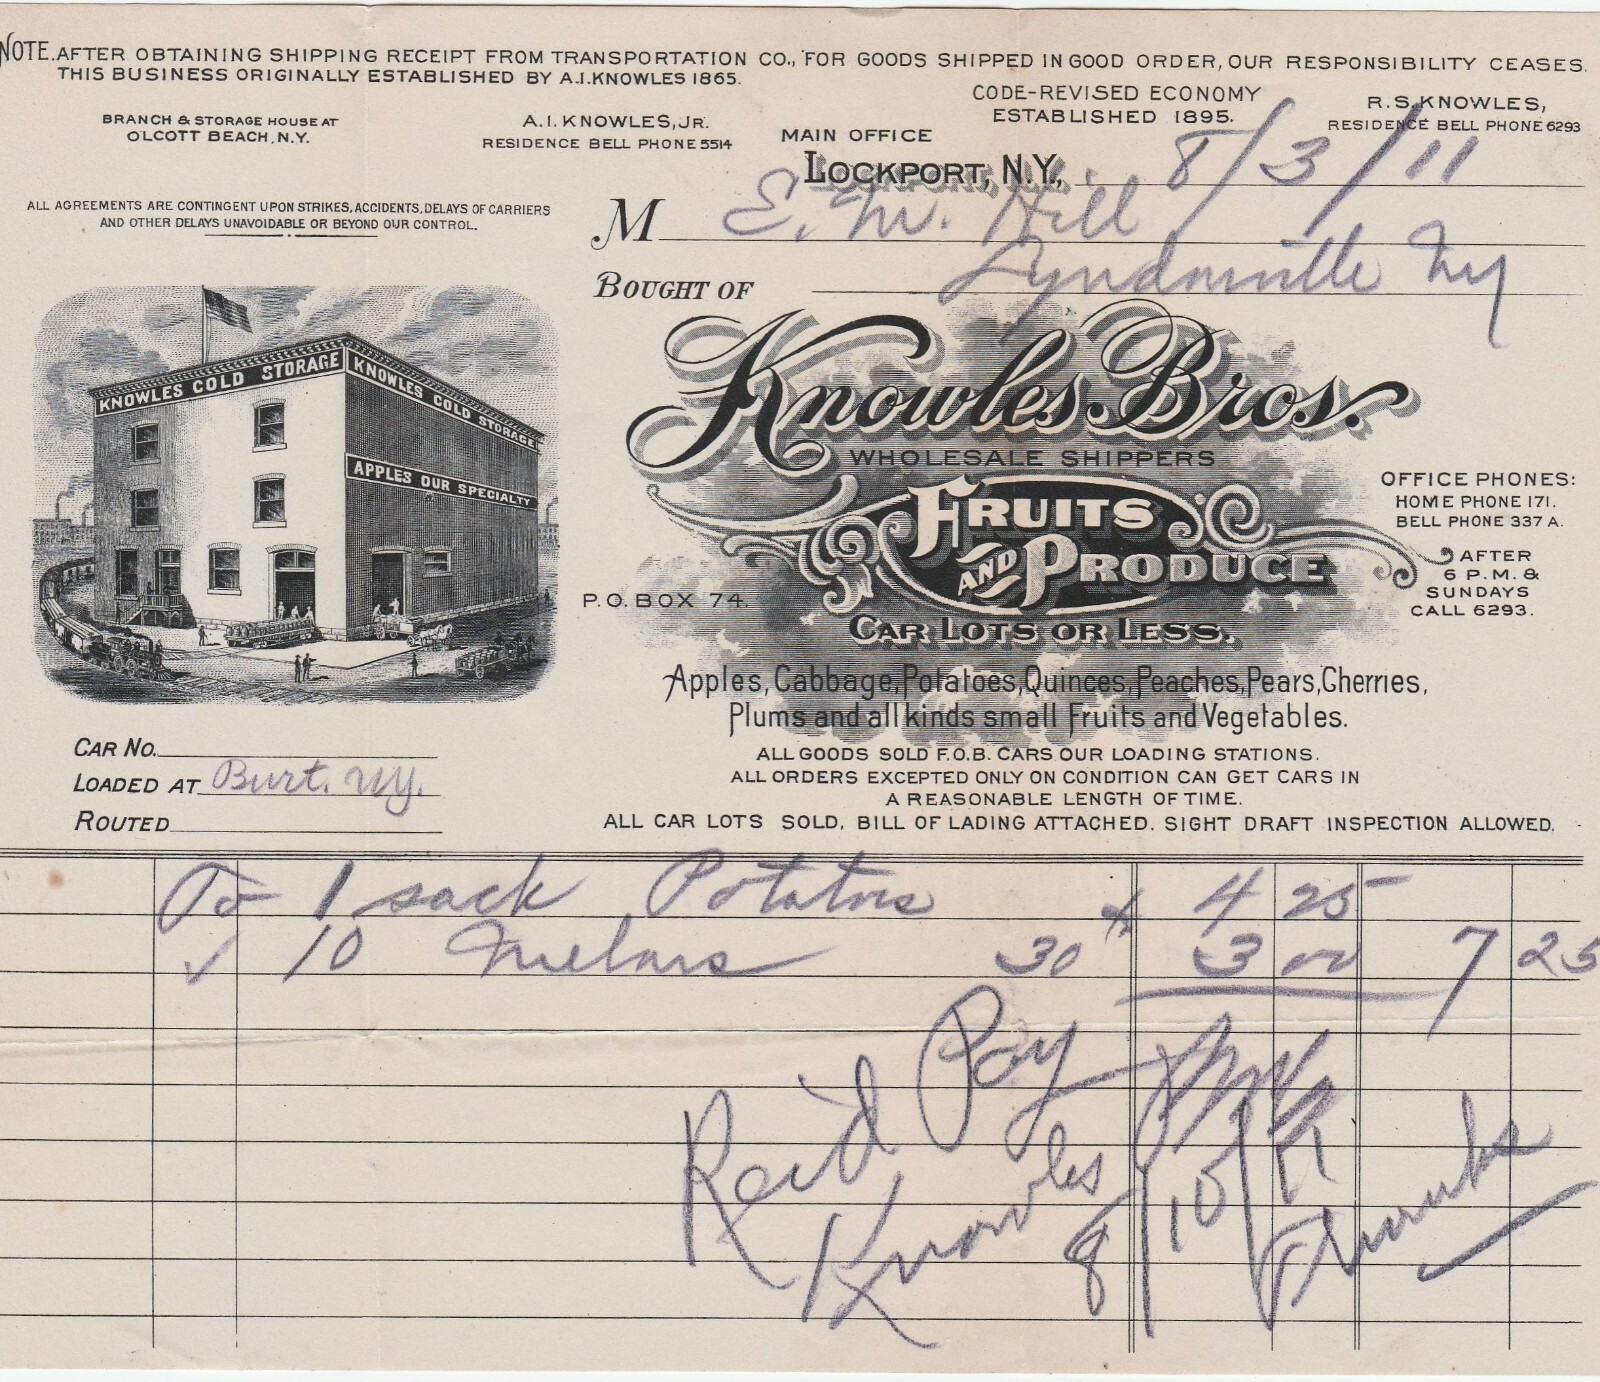 NOTE. AFTER OBTAINING SHIPPING RECEIPT FROM TRANSPORTATION CO., FOR GOODS SHIPPED IN GOOD ORDER, OUR RESPONSIBILITY CEASES.
THIS BUSINESS ORIGINALLY ESTABLISHED BY A.I. KNOWLES 1865.
CODE-REVISED ECONOMY
ESTABLISHED 1895.
R.S. KNOWLES,
RESIDENCE BELL PHONE 6293
BRANCH & STORAGE HOUSE AT
OLCOTT BEACH, N.Y.
A.I. KNOWLES, JR.
RESIDENCE BELL PHONE 5514
MAIN OFFICE
LOCKPORT, N.Y., 8/3/11
ALL AGREEMENTS ARE CONTINGENT UPON STRIKES, ACCIDENTS, DELAYS OF CARRIERS
AND OTHER DELAYS UNAVOIDABLE OR BEYOND OUR CONTROL.
M E. M. Hill
Lyndonville NY
BOUGHT OF
KNOWLES COLD STORAGE
KNOWLES COLD STORAGE
APPLES OUR SPECIALTY
Knowles Bros.
WHOLESALE SHIPPERS
FRUITS
AND PRODUCE
CAR LOTS OR LESS.
P.O. BOX 74.
OFFICE PHONES:
HOME PHONE 171.
BELL PHONE 337 A.
AFTER
6 P.M. &
SUNDAYS
CALL 6293.
Apples, Cabbage, Potatoes, Quinces, Peaches, Pears, Cherries,
Plums and all kinds small Fruits and Vegetables.
ALL GOODS SOLD F.O.B. CARS OUR LOADING STATIONS.
ALL ORDERS EXCEPTED ONLY ON CONDITION CAN GET CARS IN
A REASONABLE LENGTH OF TIME.
ALL CAR LOTS SOLD, BILL OF LADING ATTACHED. SIGHT DRAFT INSPECTION ALLOWED.
CAR NO.
LOADED AT Burt. NY.
ROUTED
To 1 sack Potatoes 4 25
✓ 10 Melons 30 3 00 7 25
Rec'd Pay
Knowles
8/10/11
Thanks